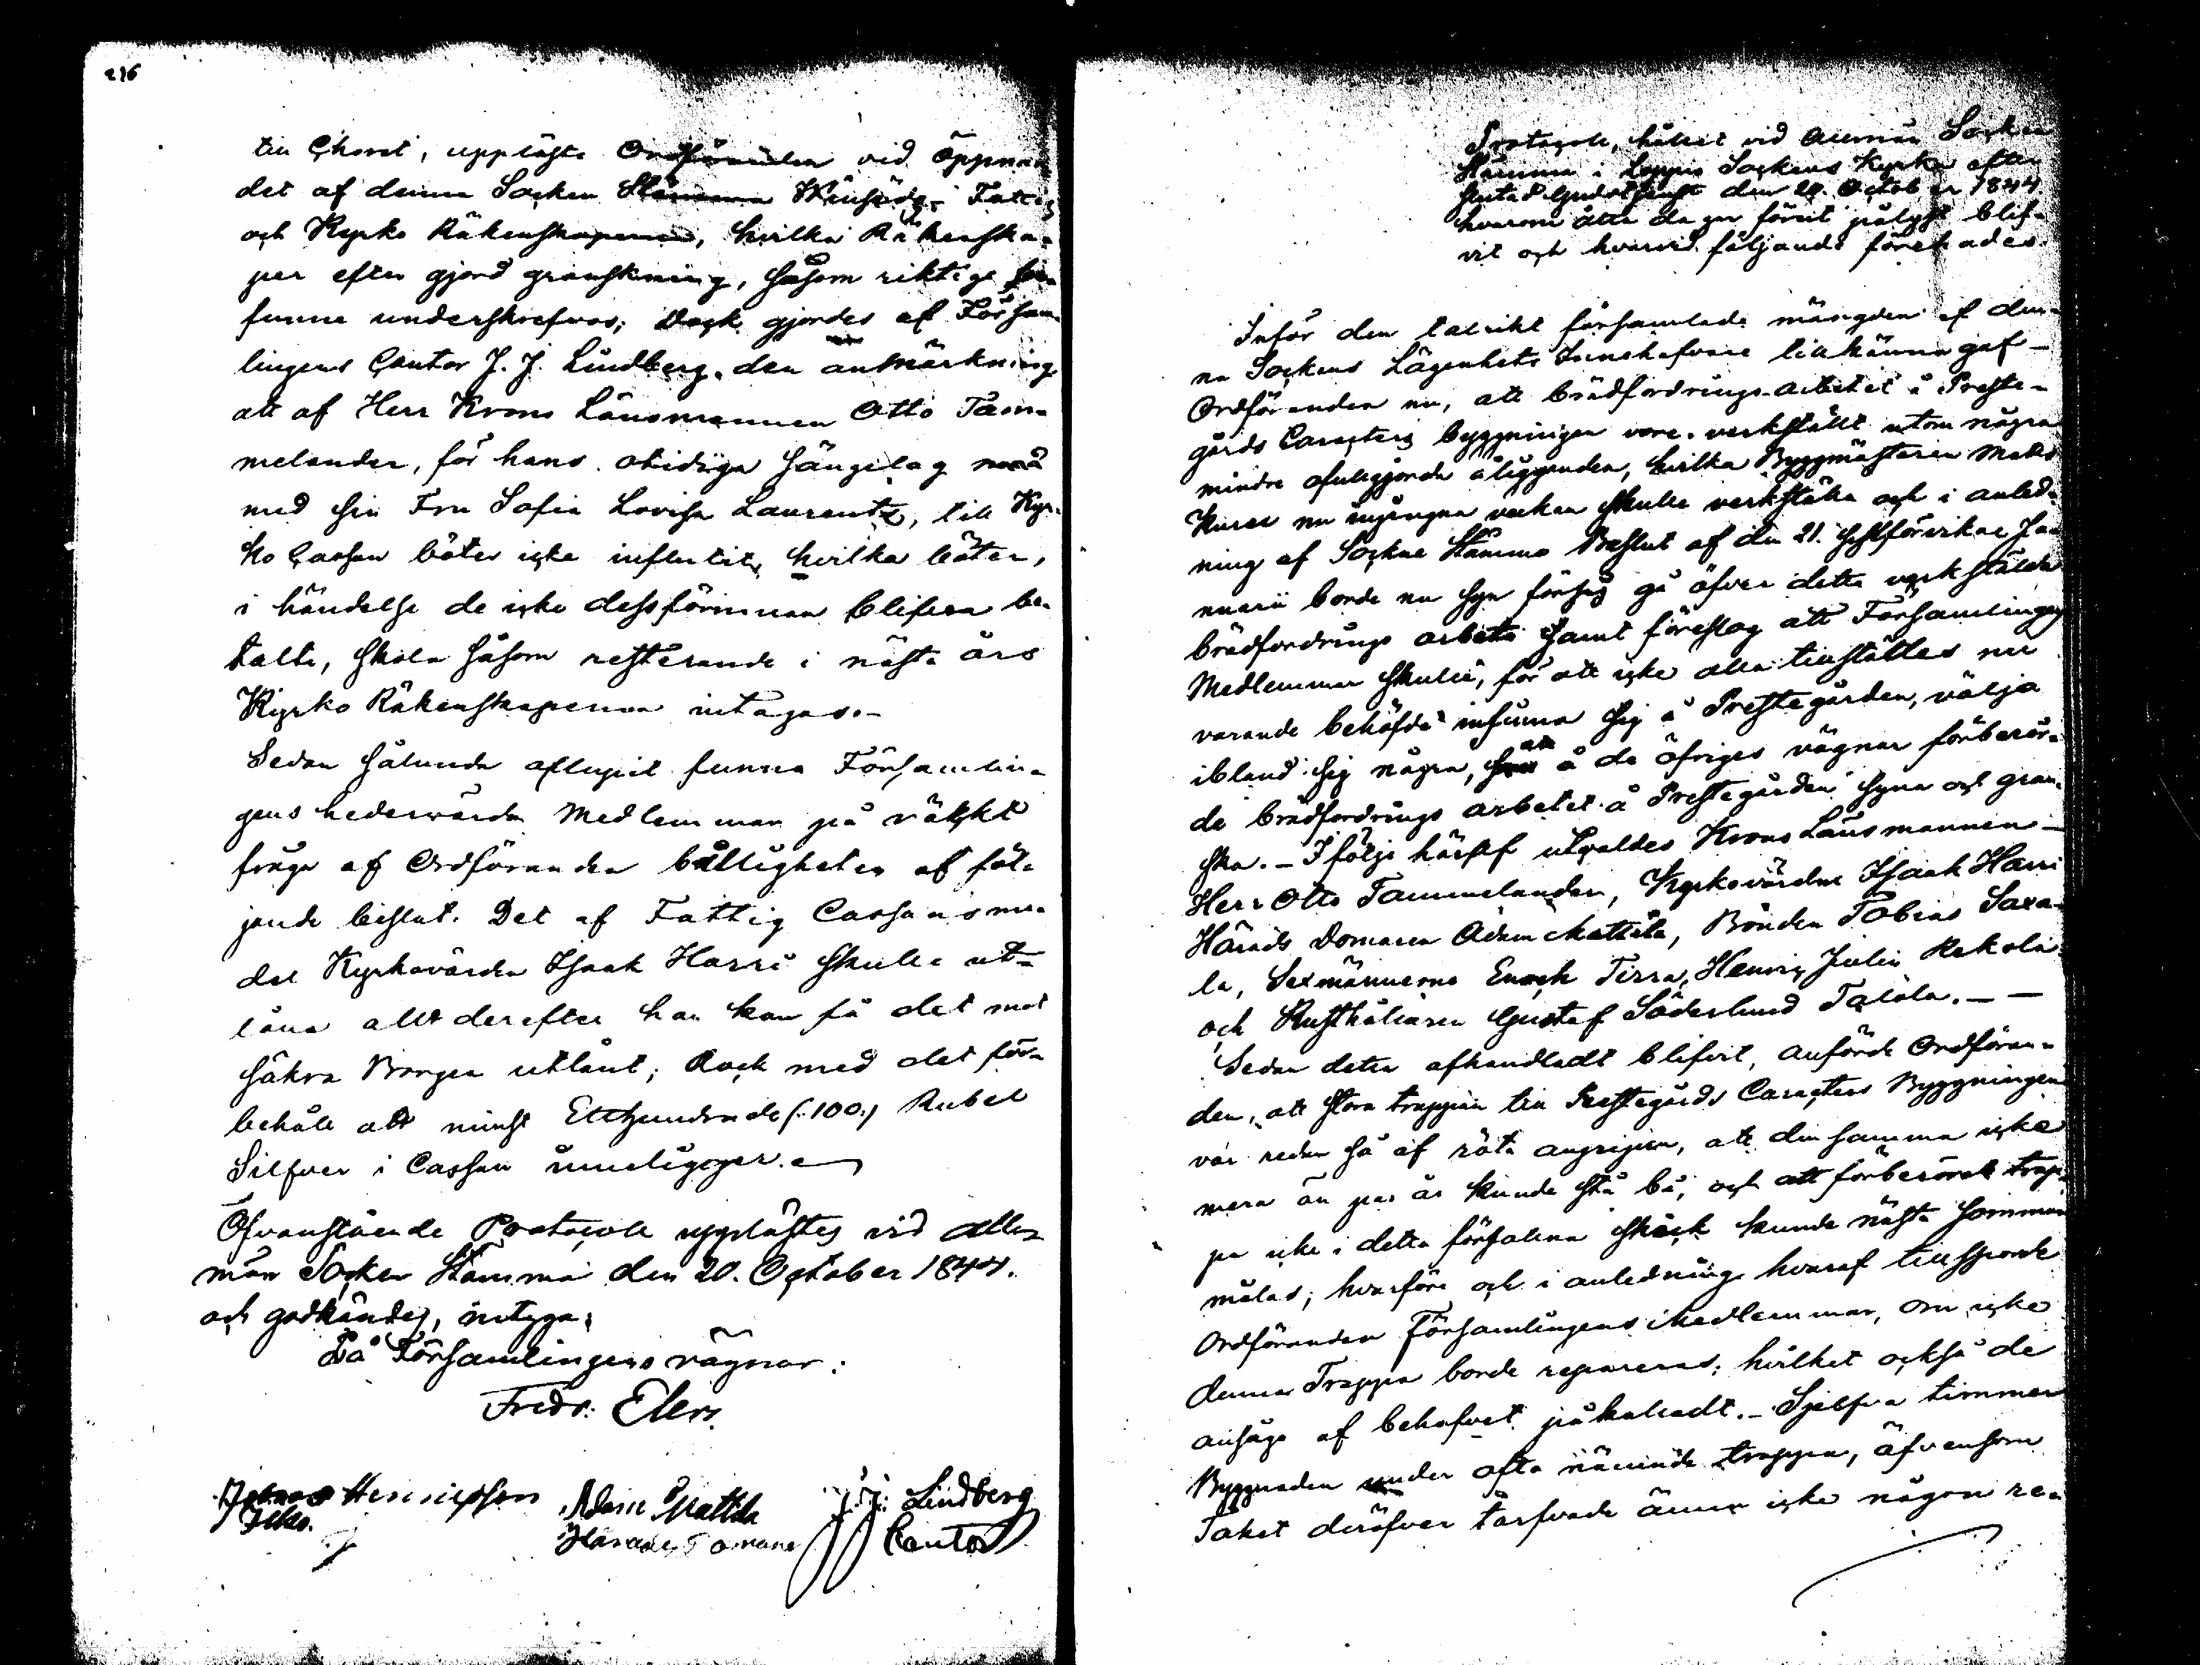 216
till Choret, uppläste Ordföranden vid öppnan
det af denna Socken Stämma Winsädz- Fattig
och Kyrko Räkenskaperna, hvilka Räkenska-
per efter gjord granskning, såsom riktige be-
funne underskrefvos; Dock gjordes af Försam-
lingens Cantor J. J. Lindberg den anmärkning
att af Herr Krono Länsmannen Otto Tam-
melander, för hans otidiga sängelag
med sin Fru Sofia Lovisa Laurentz, till Kyr-
ko Cassan böter icke influtit, hvilka böter,
i händelse de icke dessförinnan blifva be-
talte, skola såsom resterande i nästa års
Kyrko Räkenskaperna intagas.-
Sedan sålunda aflupit funno Församlin-
gens hedervärda Medlemmar på väckt
fråga af Ordföranden billigheten af föl-
jande beslut. Det af Fattig Cassans me-
del Kyrkovärden Isaak Harri skulle ut-
låna allt derefter han kan få det mot
säkra Borgen utlånt; Dock med det för-
behåll att minst Etthundrade (:100:) Rubel
Silfver i Cassan inneligger.
Ofvanstående Protocoll upplästes vid allm
män Socken Stämma den 20. October 1844.
och godkändes, intyga;
På Församlingens vägnar:
Fredr: Elers.
Johan Henricsson Adam Mattila J. J. Lindberg
Härads Domare Cantor
Protocoll, hållet vid Allmän Socken
Stämma i Loppis Sockens Kyrka efter
slutad Gudstjenst den 20. October 1844.
hvarom åtta dagar förut pålyst blif-
vit och hvarvid följande förehades.
Inför den talrikt församlade mängden af den-
na Sockens Lägenhets Innehafvare tillkänna gaf-
Ordföranden nu, att brädfordrings-arbetet å Preste-
gårds Caracters byggningen vore verkstäldt utom några
mindre ofullgjorda åligganden, hvilka Byggmästaren Matts
Kurer nu ingångna veckan skulle verkställa och i anled-
ning af Socken Stämmo Beslut af den 21. sistförvikne Ja-
nuarii borde nu syn försig gå öfver detta verkstälde
brädfordrings arbete samt föreslog att Församlingens
Medlemmar skulle, för att icke alla tillstädes nu
varande behöfde infinna sig å Prestegården, välja
ibland sig några, att å de öfriges vägnar förberör-
de brädfordrings arbetet å Prestegården syna och gran-
ska.- I följe häraf utvaldes Krono Länsmannen-
Herr Otto Tammelander, Kyrkovärden Isaak Harri
Härads Domaren Adam Mattila, Bonden Tobias Saxa-
la, Sexmännerne Enoch Tirra, Henric Julin Rekola
och Rusthållaren Gustaf Söderlund Talola. - -
Sedan detta afhandladt blifvit, anförde Ordföran-
den, att stora trappan till Prestegårds Caracters Byggningen
var redan så af röta angripen, att den samma icke
mera än par år kunde stå bi, och att förberörde trap-
pa icke i detta förfallna skick kunde nästa sommar
målas; hvarföre och i anledning hvaraf tillsporde
Ordföranden Församlingens Medlemmar, om icke
denna Trappa borde repareras; hvilket också de
ansågo af behofvet påkalladt.- Sjelfva timmer
Byggnaden under ofta nämnde trappa, äfvensom
Taket deröfver tarfvade ännu icke någon re-